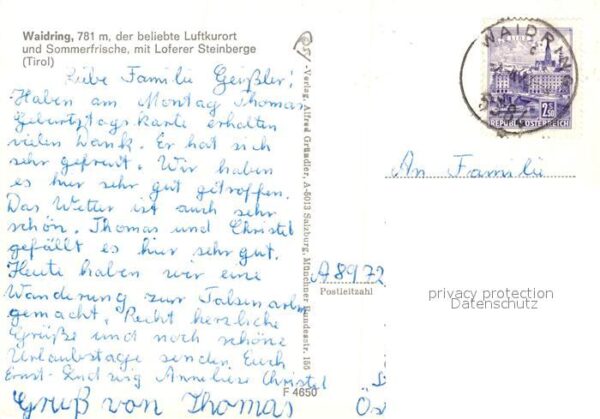 Waidring, 781 m, der beliebte Luftkurort
und Sommerfrische, mit Loferer Steinberge
(Tirol)
Liebe Familie Geißler!
Haben am Montag Thomas
Geburtztagskarte erhalten
vielen Dank. Er hat sich
sehr gefreut. Wir haben
es hier sehr gut getroffen.
Das Wetter ist auch sehr
schön. Thomas und Christel
gefällt es hier sehr gut.
Heute haben wir eine
Wanderung zur
gemacht. Recht herzliche
Grüße und noch schöne
Urlaubstage senden Euch
Ernst-Ludwig Anneliese Christel
Gruß von Thomas
F 4650
Verlag Alfred Gründler, A-5013 Salzburg, Münchner Bundesstr. 156
WAIDRING
2.50
REPUBLIK ÖSTERREICH
An Familie
A 8972
Postleitzahl
privacy protection
Datenschutz